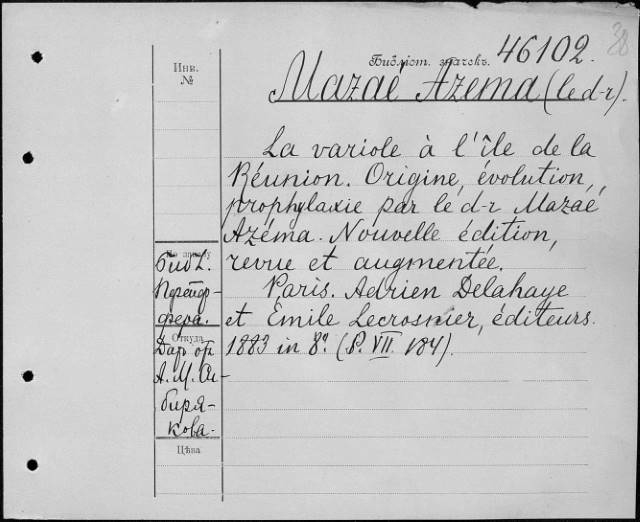 38
Библіот. значекъ. 46102.
Инв. №
Mazaé Azéma (le d-r).
La variole à l'île de la
Réunion. Origine, évolution,
prophylaxie par le d-r Mazaé
Azéma. Nouvelle édition,
revue et augmentée.
Paris. Adrien Delahaye
et Émile Lecrosnier, éditeurs.
1883 in 8º (P. VII. 184).
Библ.
Откуда
Дар от
А. М. Си-
биря-
кова.
Цѣна